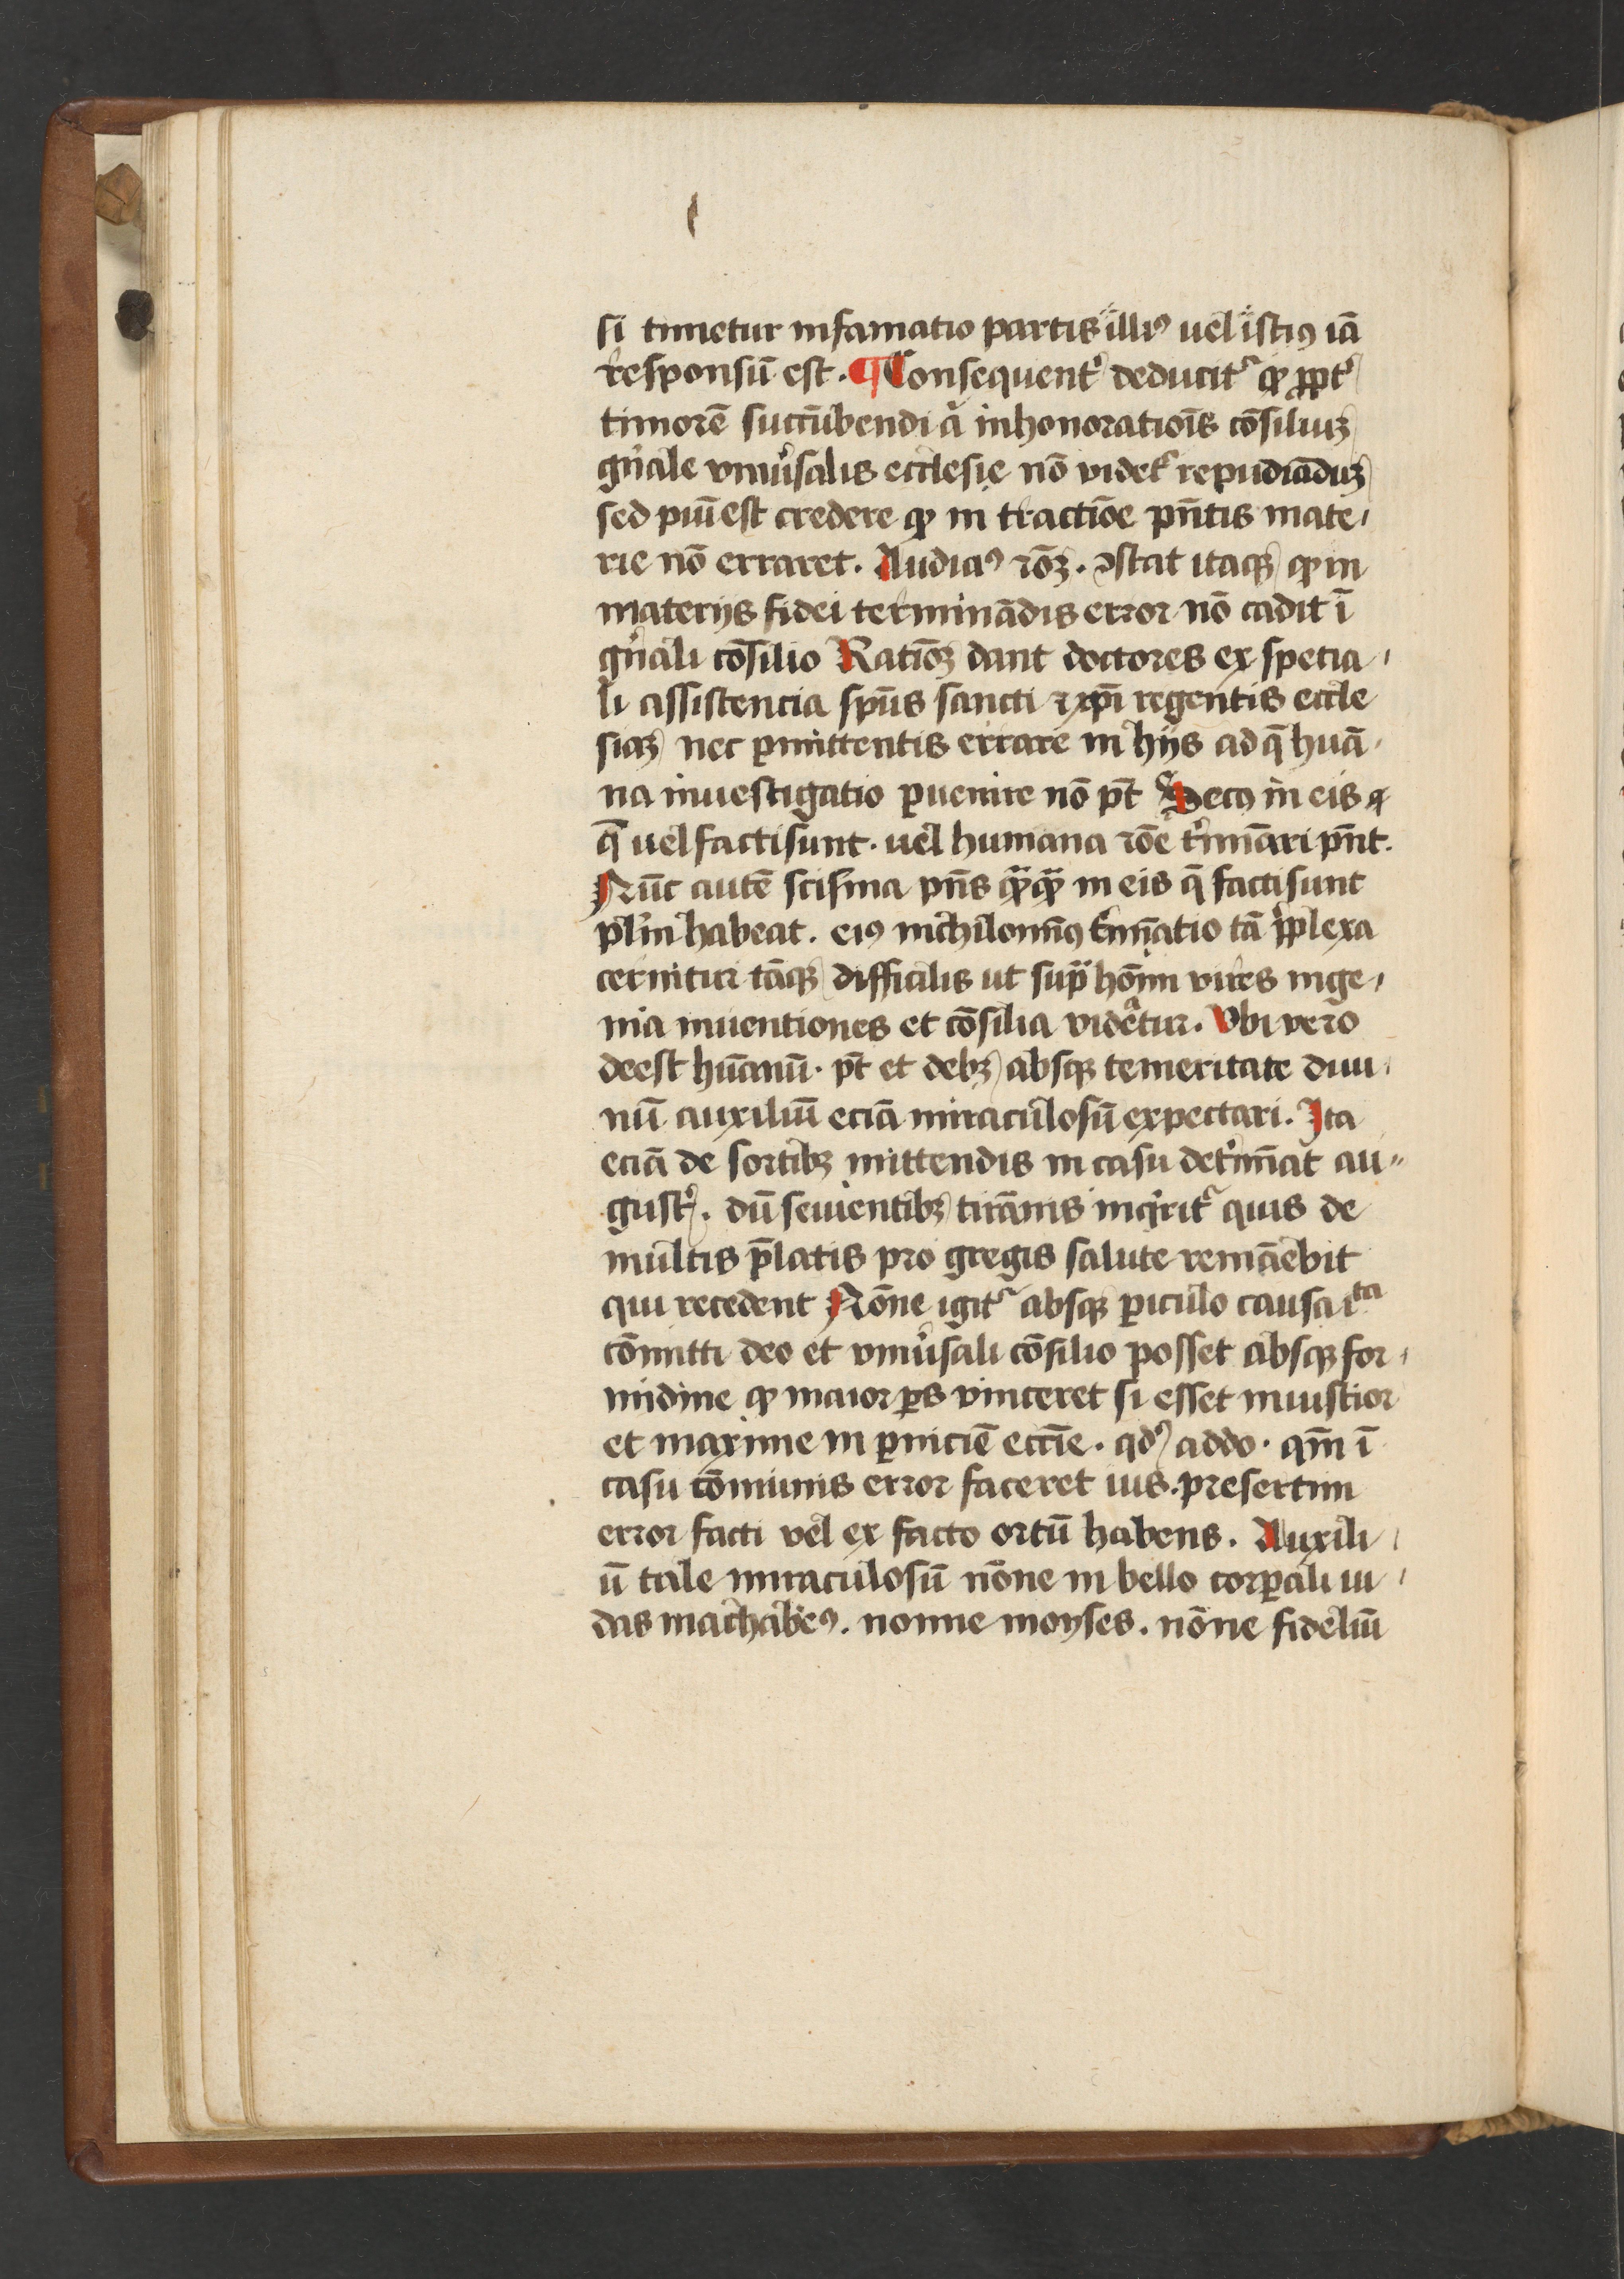 si timetur infamatio partis illiꝰ uel istiꝰ iā
responsū est. ¶ Consequent͛ deducit᷑ ꝙ ꝓpt͛
timorē succūbendi a inhonoratiōis cōsiliuꝫ
gn͛ale vniu͛salis ecclesie nō videt᷑ repudiāduꝫ
sed piū est credere ꝙ in tractiōe pn̄tis mate-
rie nō erraret. Audiaꝰ rōꝫ. ꝯstat itaqꝫ ꝙ in
materijs fidei termināndis error nō cadit ī
gn͛ali cōsilio Ratiōꝫ dant doctores ex specia-
li assistencia sp̄us sancti ⁊ xp̄i regentis eccle
siaꝫ nec ꝑmittentis errare in hijs ad q̄ huā-
na inuestigatio ꝑuenire nō pt̄ Secꝰ in eis
q̄ uel facti sunt. uel humana rōe t͛mīari pn̄t.
Nūc autē scisma pn̄s qᷓqᷓ in eis q̄ facti sunt
pl͛m habeat. eiꝰ nichilominꝰ t͛mīatio tā ꝑplexa
cernitur tāqꝫ difficilis ut supᷓ hoīm vires inge-
nia inuentiones et cōsilia videatur. Vbi vero
deest hūanū. pt̄ et debꝫ absqꝫ temeritate diui-
nū auxiliū eciā miraculosū expectari. Ita
eciā de sortibꝫ mittendis in casu det͛mīat au-
gustꝰ. dū seuientibꝫ tirānis inqͥrit᷑ quis de
multis p̄latis pro gregis salute remāebit
qui recedent Nōne igit᷑ absqꝫ ꝑiculo causa ita
cōmitti deo et vniu͛sali cōsilio posset absqꝫ for-
midine ꝙ maior ꝑs vinceret si esset iniustior
et maxime in ꝑniciē eccīe. qd̛ addo. qm̄ ī
casu cōmunis error faceret ius. presertim
error facti vel ex facto ortū habens. Auxili-
ū tale miraculosū nōne in bello corꝑali iu-
das machabeꝰ. nonne moyses. nōne fideliū